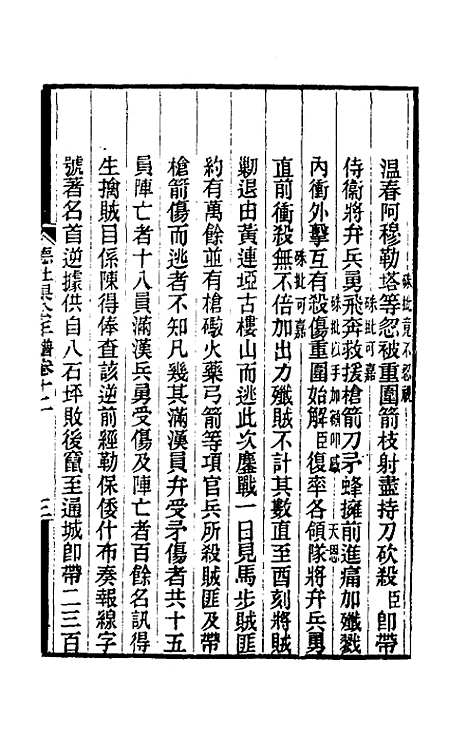 温春阿穆勒塔等忽被重圍箭枝射盡持刀砍殺臣即帶
硃批竟不忍視
侍衞將弁兵勇飛奔救援槍箭刀矛蜂擁前進痛加殲戮
硃批可嘉
內衝外擊互有殺傷重圍始解臣復率各領隊將弁兵勇
硃批以手加額叩感
天恩
直前衝殺無不倍加出力殲賊不計其數直至酉刻將賊
硃批可嘉
勦退由黃連埡古樓山而逃此次鏖戰一日見馬步賊匪
約有萬餘並有槍礮火藥弓箭等項官兵所殺賊匪及帶
槍箭傷而逃者不知凡幾其滿漢員弁受矛傷者共十五
員陣亡者十八員滿漢兵勇受傷及陣亡者百餘名訊得
生擒賊目係陳得俸查該逆前經勒保倭什布奏報線字
號著名首逆據供自八石坪敗後竄至通城卽帶二三百
德壯果公年譜卷十二
三